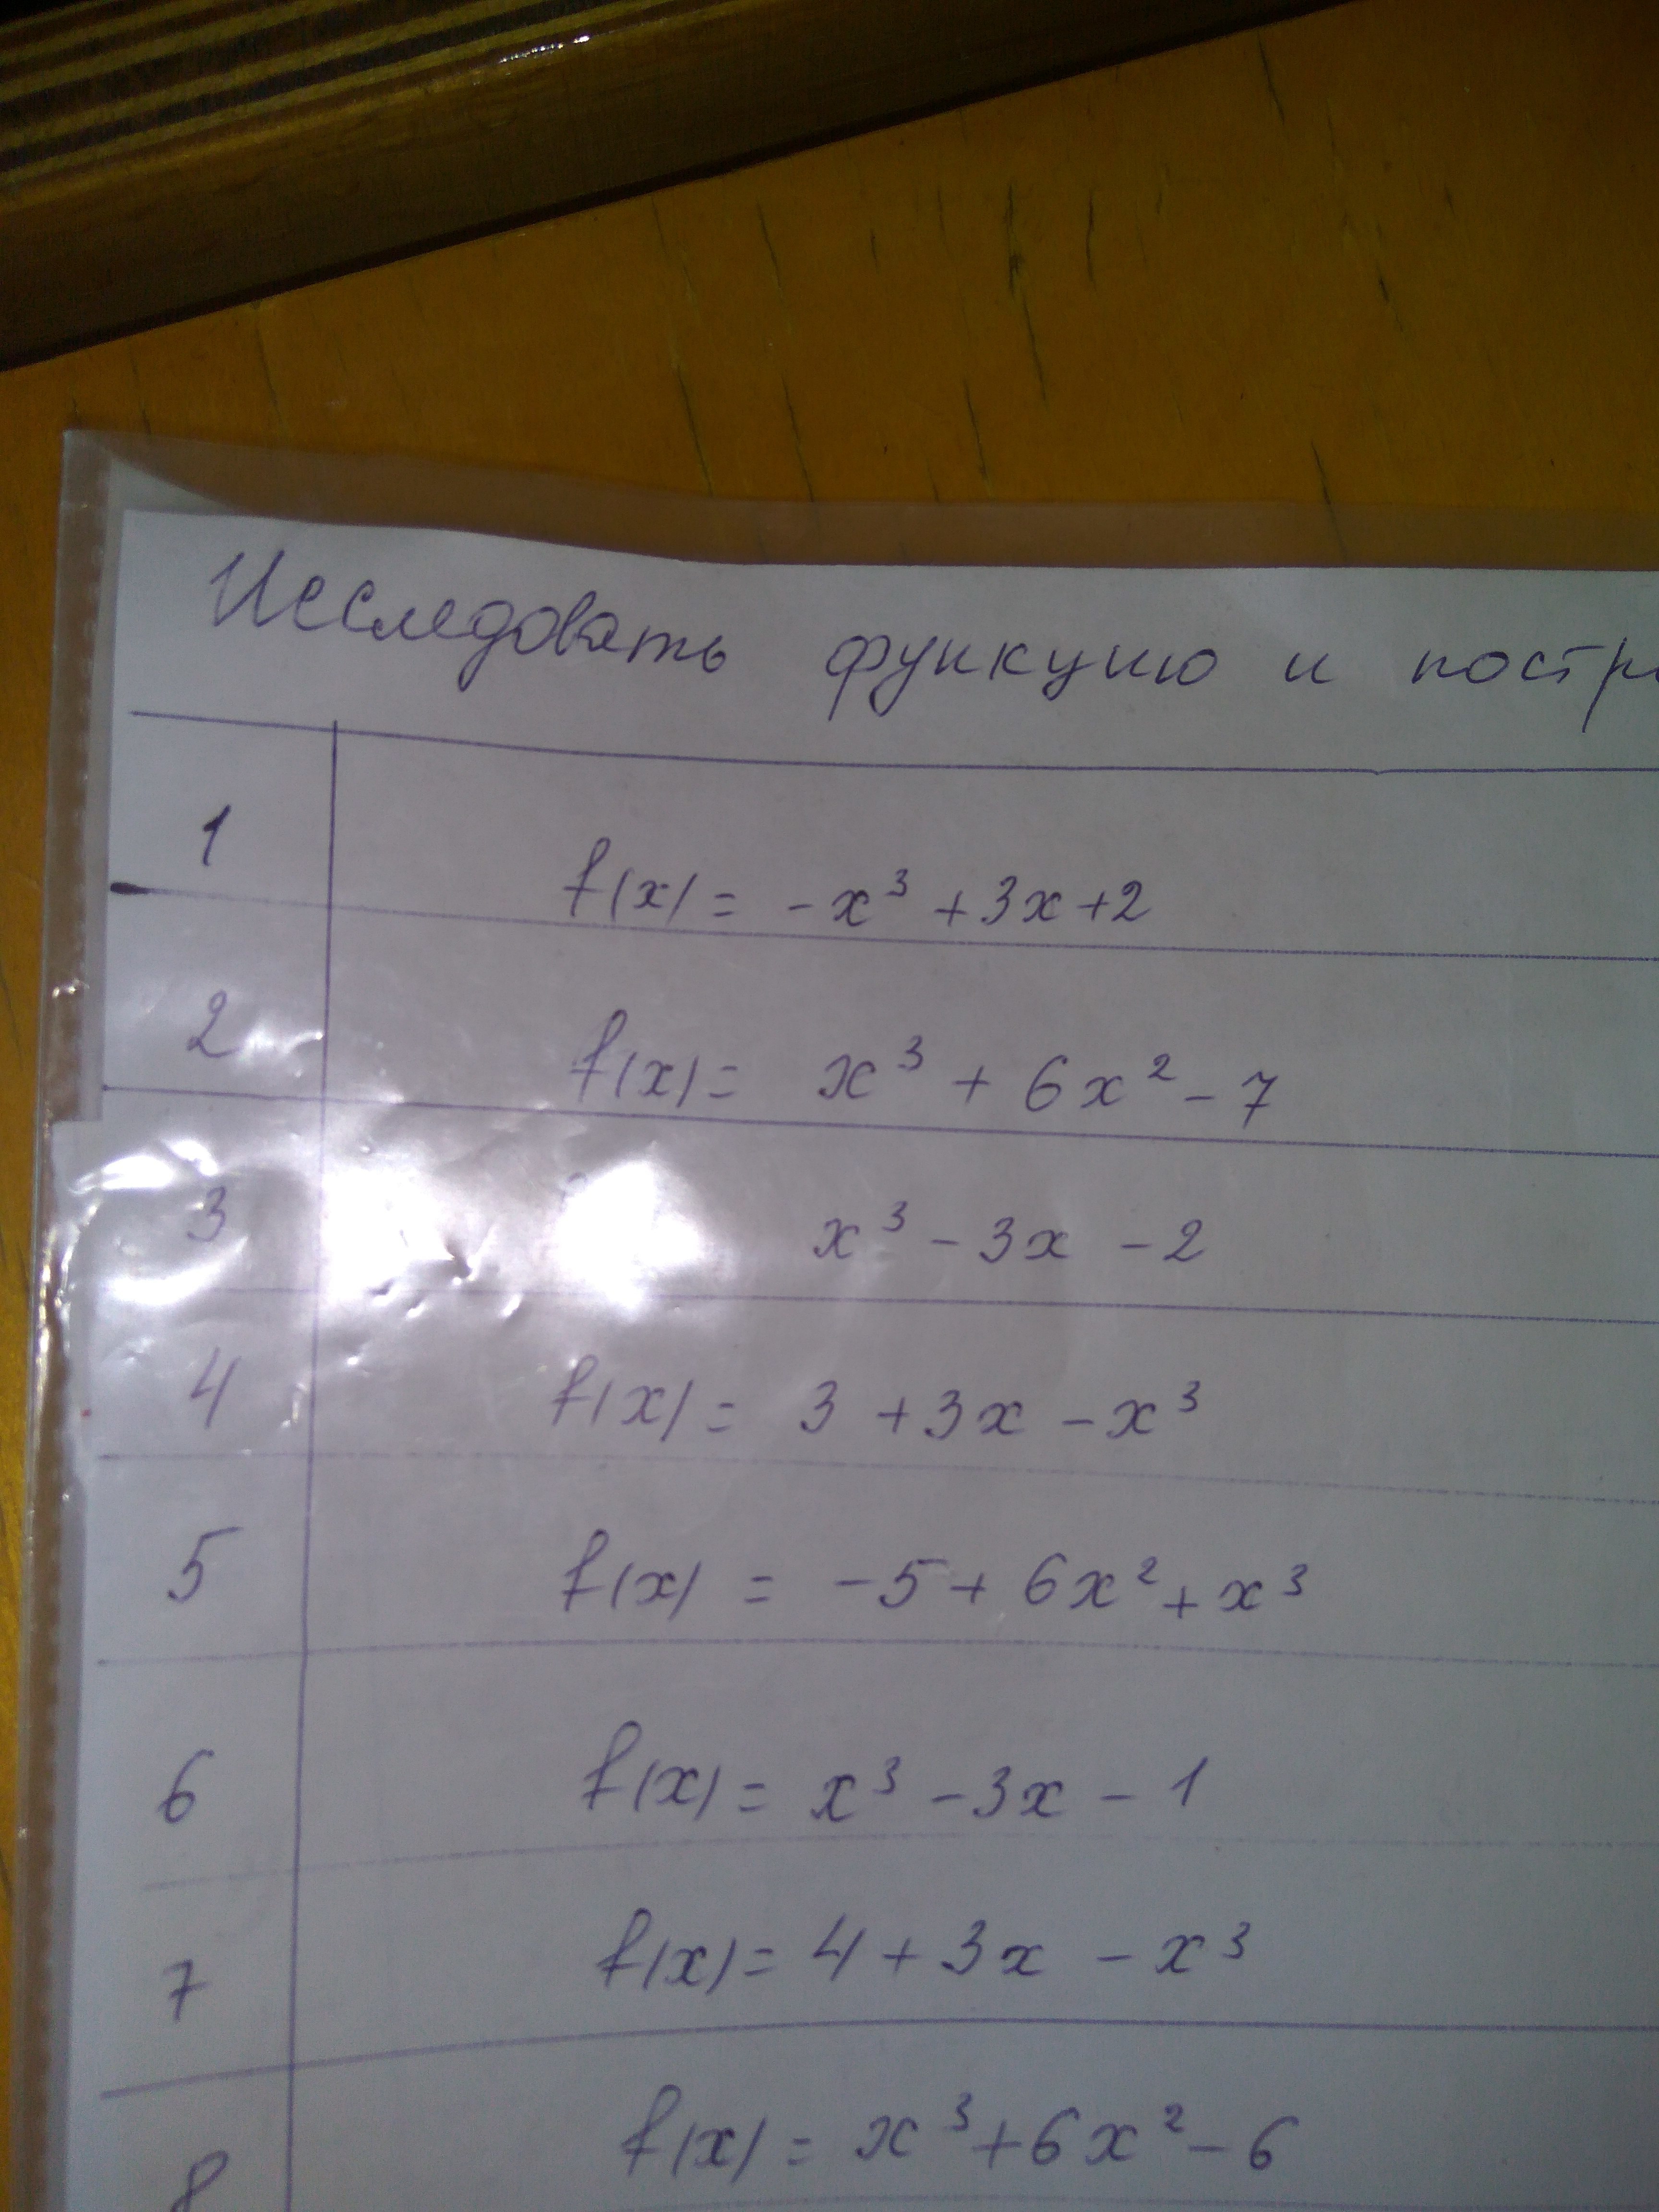 Исследовать функцию и постр
1 f(x) = -x³ + 3x + 2
2 f(x) = x³ + 6x² - 7
3 x³ - 3x - 2
4 f(x) = 3 + 3x - x³
5 f(x) = -5 + 6x² + x³
6 f(x) = x³ - 3x - 1
7 f(x) = 4 + 3x - x³
8 f(x) = x³ + 6x² - 6